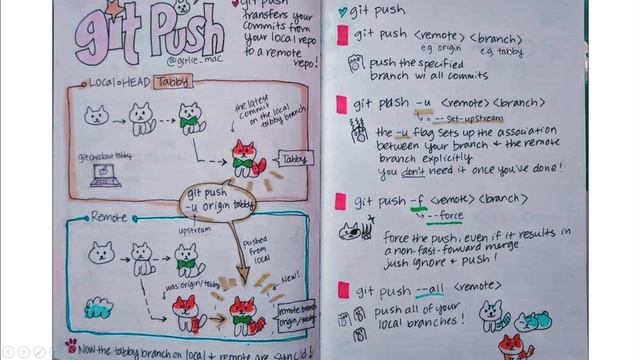 git Push
@girlie_mac
git push
transfers your
commits from
your local repo
to a remote
repo!
LOCAL HEAD Tabby
the latest
commit
on the local
tabby branch
git checkout tabby
Tabby
git push
-u origin tabby
upstream
Remote
pushed
from
local
was origin/tabby
New!
remote branch
origin/tabby
Now the tabby branch on local & remote are sync'd!
git push
git push <remote> <branch>
e.g. origin e.g. tabby
push the specified
branch w/ all commits
git push -u <remote> <branch>
= --set-upstream
the -u flag sets up the association
between your branch & the remote
branch explicitly
you don't need it once you've done!
git push -f <remote> <branch>
--force
Force the push, even if it results in
a non-fast-forward merge.
just ignore & push!
git push --all <remote>
push all of your
local branches!